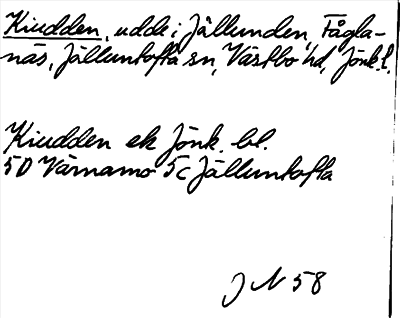 Kiudden, udde i Jällunden, Fågla-
näs, Jälluntofta sn, Västbo hd, Jönk. l.
Kiudden ek Jönk. bl.
5D Värnamo 5c Jälluntofta
J N 58